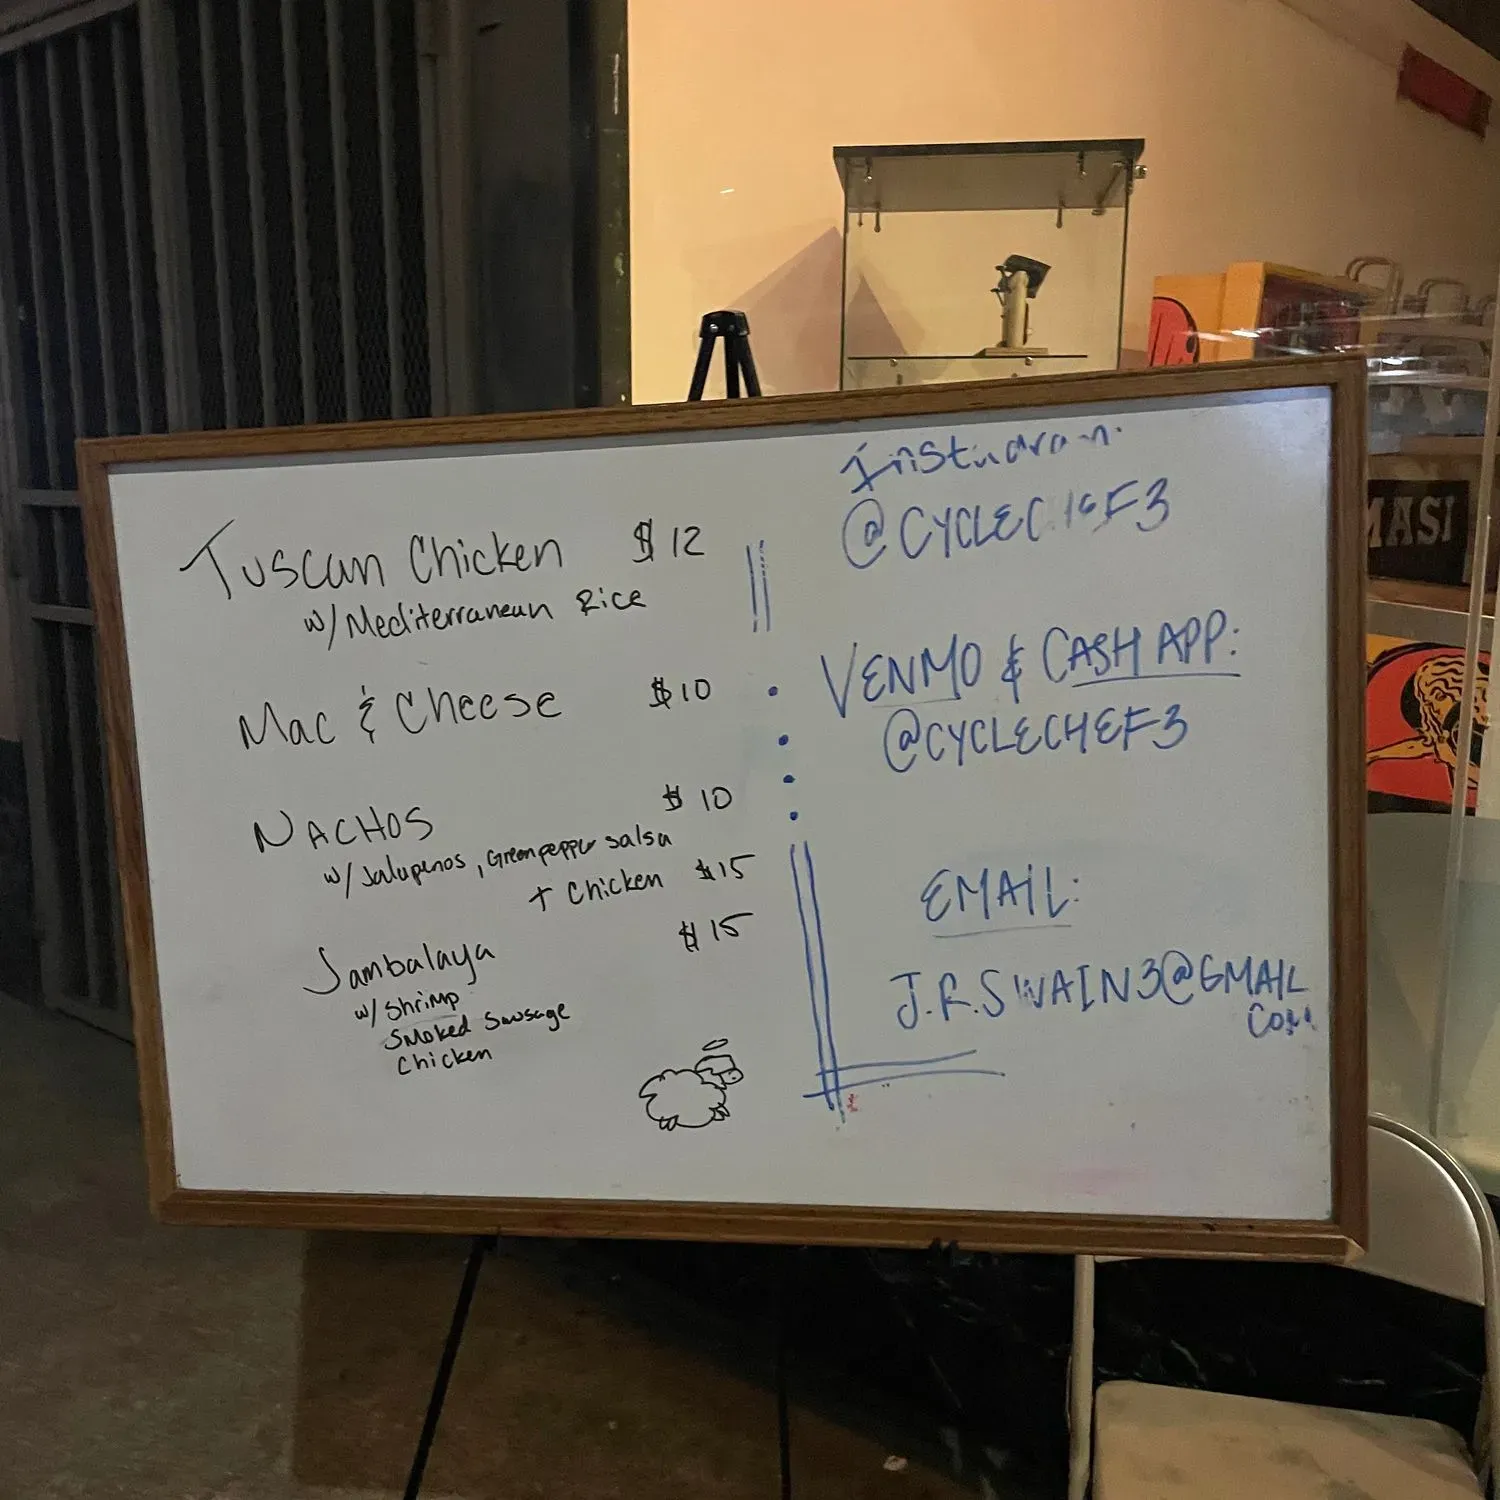 Tuscan Chicken $12
w/Mediterranean Rice
Mac & Cheese $10
NACHOS $10
w/Jalapenos, Greenpepper salsa
+ Chicken $15
Jambalaya $15
w/ Shrimp
Smoked Sausage
Chicken
Instagram:
@CYCLECHEF3
VENMO & CASH APP:
@CYCLECHEF3
EMAIL:
J.R.SWAIN3@GMAIL
COM
MASI